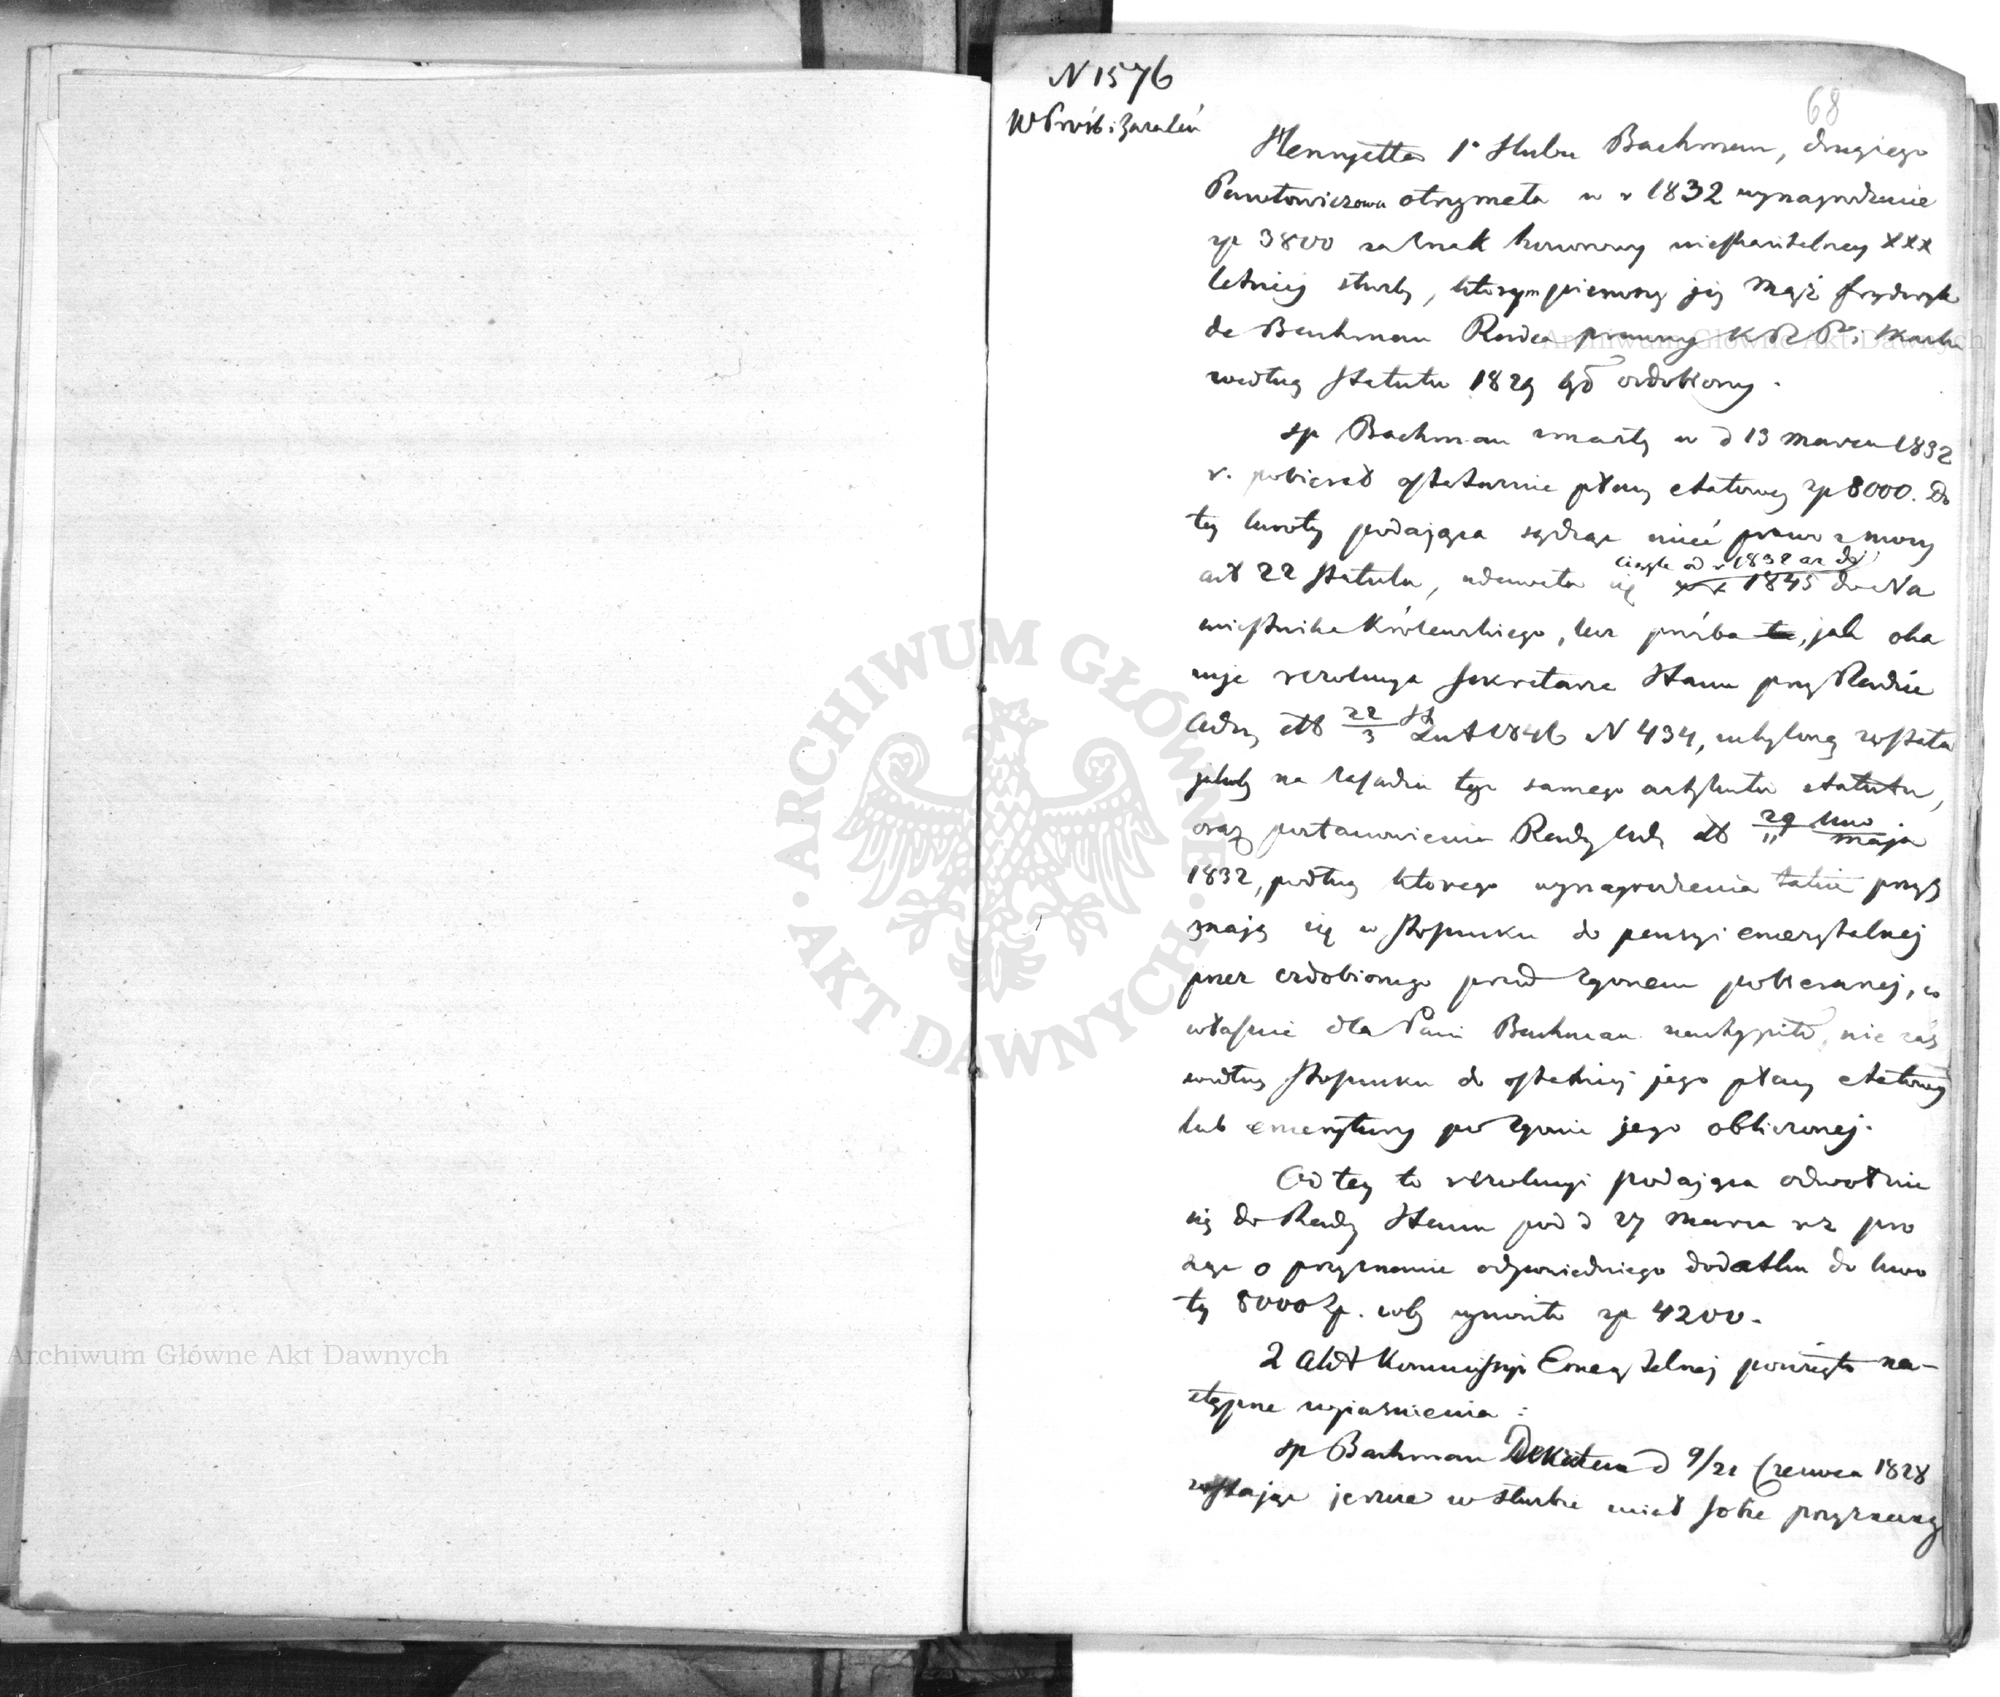 N 1576
W Próśb i Zażaleń
68
Henryetta 1° ślubu Bachman, drugiego
Pawłowiczowa otrzymała w r 1832 wynagrodzenie
zp 3800 za znak honorowy nieskazitelney XXX
letniey służby, którym pierwszy jej mąż Frydryk
de Bachman Radca prawny K R P i Skarbu
według statutu 1829 był ozdobiony.
śp Bachman zmarły w d 13 marca 1832
r. pobierał ostatecznie płacy etatowey zp 8000. Do
tey kwoty podająca sądząc mieć prawo z mocy
art 22 statutu, udawała się ciągle od r 1832 aż do
1845 do Na
miestnika Królewskiego, lecz prośba ta, jak oka
zuje rezolucya Sekretarza Stanu przy Radzie
Adm dtt 22/3 Lut 1846 N 434, uchyloną została
jakoby na zasadzie tego samego artykułu statutu,
oraz postanowienia Rady Adm dtt 29 kwie/11 maja
1832, podług którego wynagrodzenia takie przy
znają się w stosunku do pensyi emerytalnej
przez ozdobionego przed zgonem pobieranej, co
właśnie dla Pani Bachman nastąpiło, nie zaś
według stosunku do ostatniej jego płacy etatowey
lub emerytury po zgonie jego obliczonej.
Od tey to rezolucyi podająca odwołuie
się do Rady Stanu pod d 27 marca rz pro
sząc o przyznanie odpowiedniego dodatku do kwo
ty 8000 zp. coby wynosiło zp 4200.
Z akt Kommissyi Emerytalnej powzięto na-
stępne wyjaśnienia:
śp Bachman Dekretem d 9/21 Czerwca 1828
zostając jeszcze w służbie miał sobie przyznaną
Archiwum Główne Akt Dawnych
Archiwum Główne Akt Dawnych
ARCHIWUM GŁÓWNE · AKT DAWNYCH ·